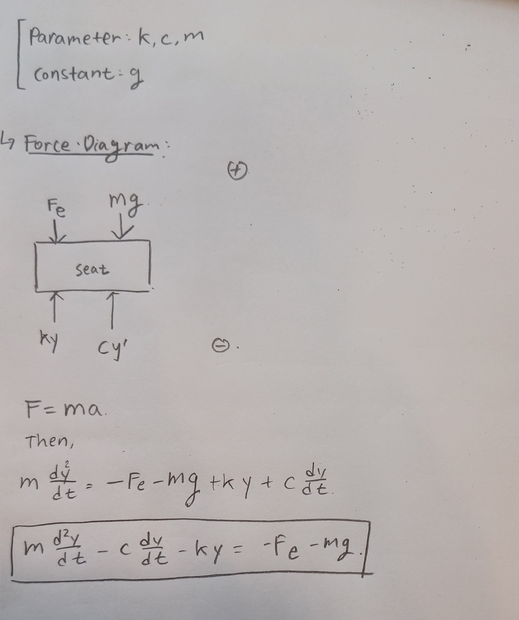 Parameter: k, c, m
Constant: g
↳ Force Diagram:
⊕
Fe mg
seat
ky cy'
⊖.
F = ma.
Then,
m dy²/dt = -Fe - mg + ky + c dy/dt.
m d²y/dt - c dy/dt - ky = -Fe - mg.